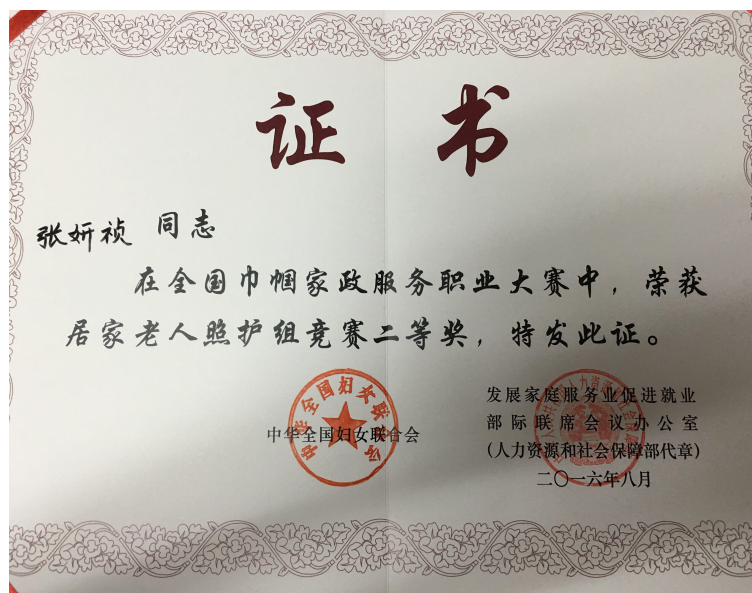 证书
张妍祯 同志
在全国巾帼家政服务职业大赛中，荣获
居家老人照护组竞赛二等奖，特发此证。
中华全国妇女联合会
中华全国妇女联合会
发展家庭服务业促进就业
部际联席会议办公室
(人力资源和社会保障部代章)
二〇一六年八月